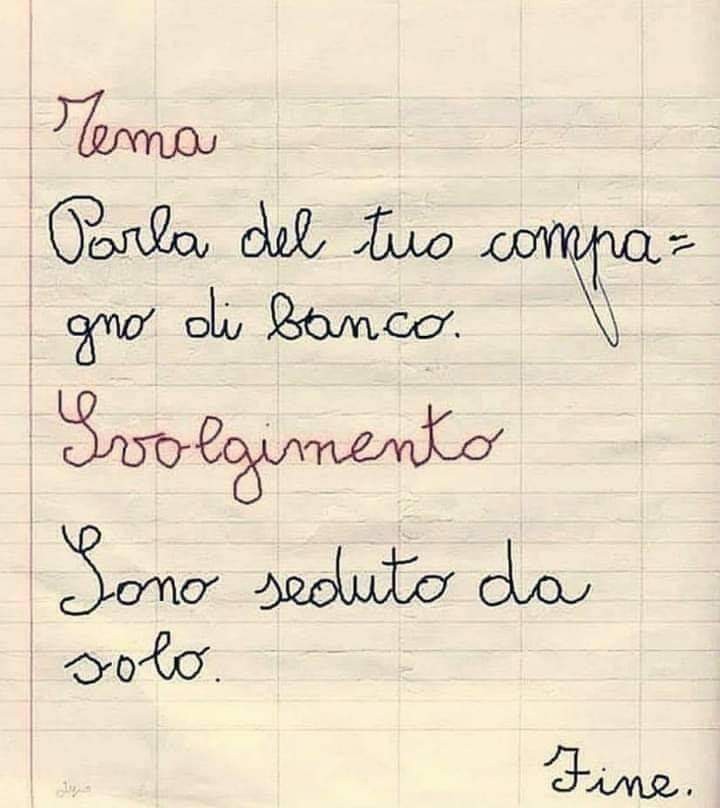 Tema
Parla del tuo compa=
gno di banco.
Svolgimento
Sono seduto da
solo.
Fine.